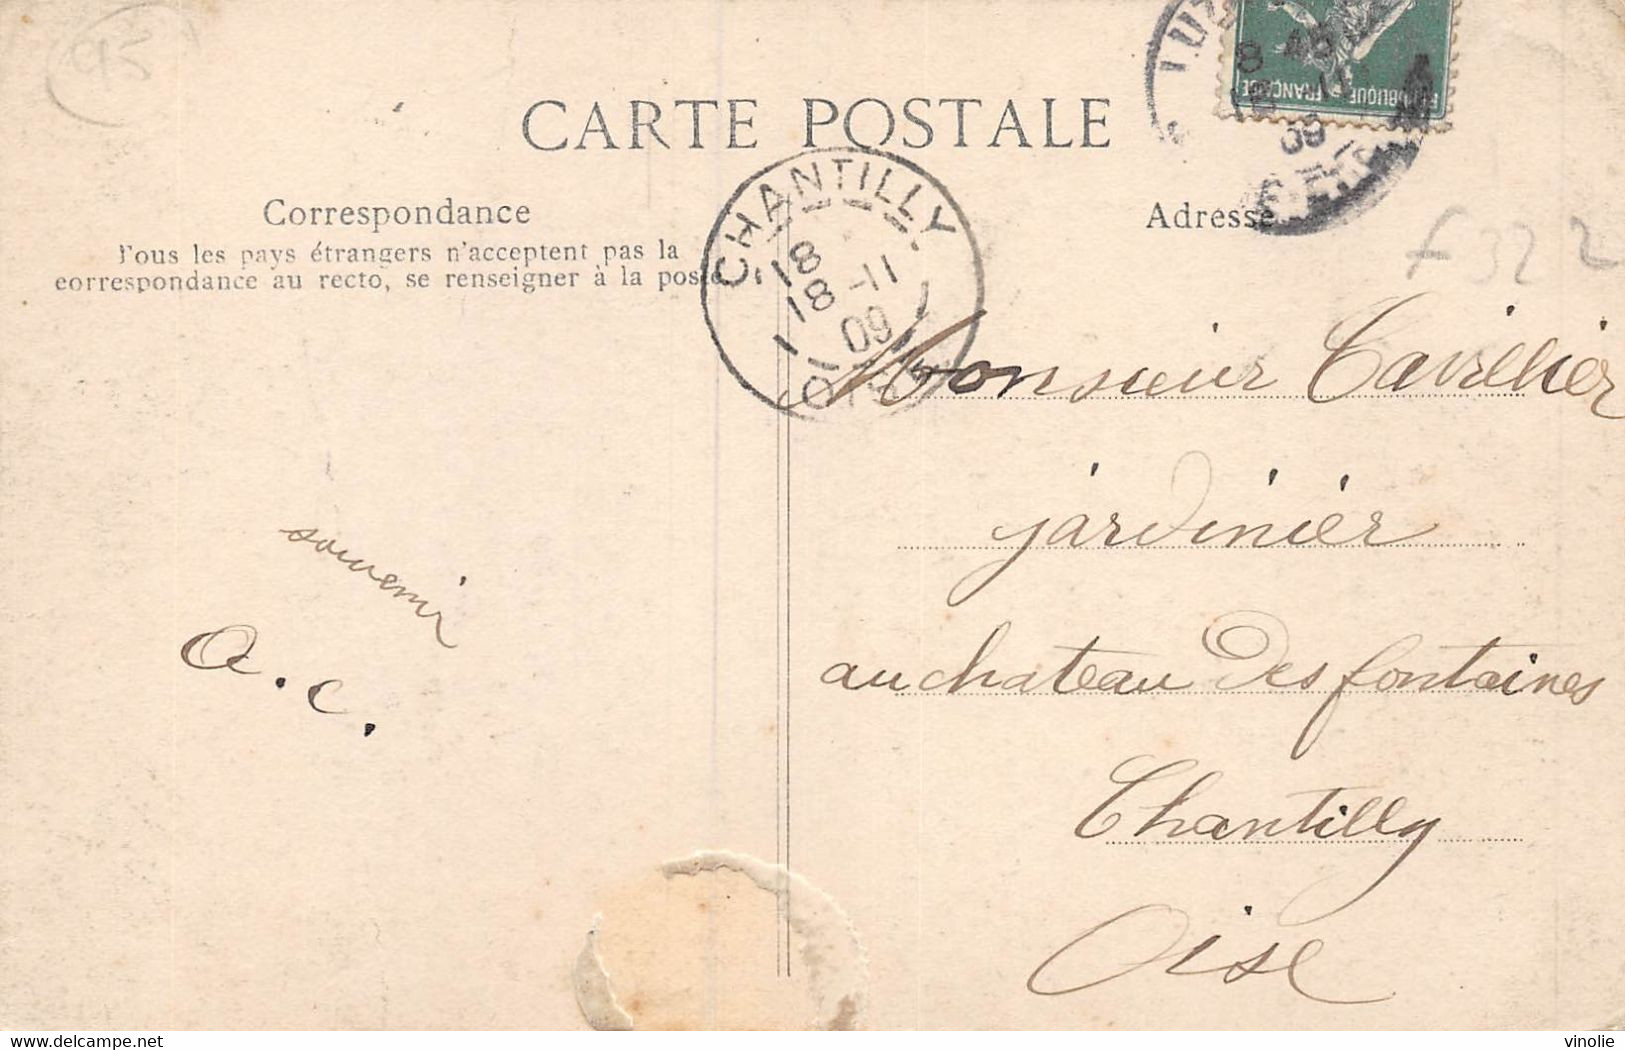 95
CARTE POSTALE
Correspondance
Tous les pays étrangers n'acceptent pas la
correspondance au recto, se renseigner à la poste
Adresse
LUZ
8 45
18 11
09
REPUBLIQUE FRANÇAISE
CHANTILLY
18 8
18 -11
09
OISE
f 322
Monsieur Cavillier
jardinier
au chateau des fontaines
Chantilly
Oise
souvenir
a. c.
delcampe.net
vinolie